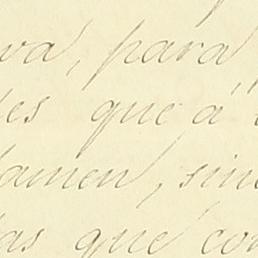 va, para
es que a
amen, sin
as que con